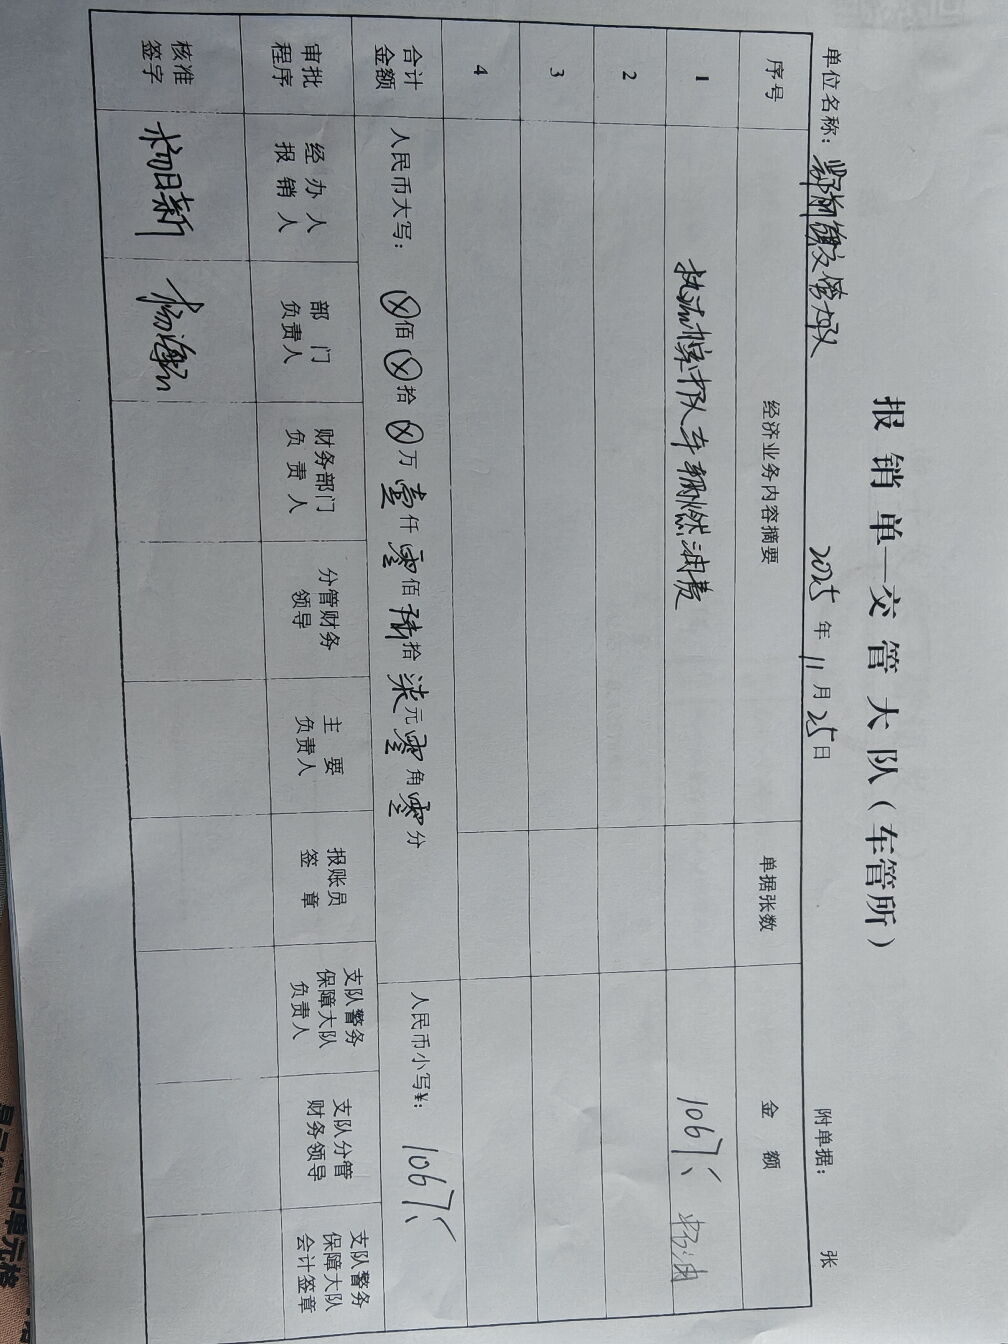 报销单—交管大队（车管所）
单位名称：鄂前旗交管大队 2025年11月25日 附单据： 张
序号 经济业务内容摘要 单据张数 金额
1 执法执勤车辆燃油费 1067元
2
3
4
合计金额 人民币大写：ⓧ佰ⓧ拾ⓧ万壹仟零佰陆拾柒元零角零分 人民币小写¥： 1067元
审批程序 经办人报销人 部门负责人 财务部门负责人 分管财务领导 主要负责人 报账员签章 支队警务保障大队负责人 支队分管财务领导 支队警务保障大队会计签章
核准签字 杨日新